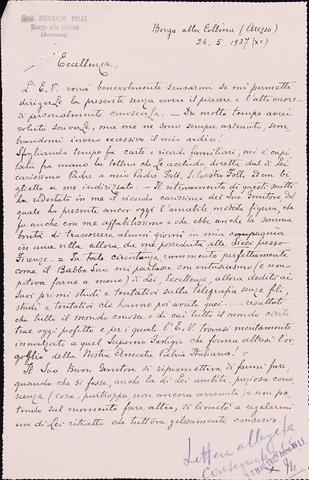 RICCARDO FOLLI
Borgo alla Collina
(Arezzo)
Borgo alla Collina (Arezzo)
24. 5. 1937 (XV)
Eccellenza,
L'E. V. vorrà benevolmente scusarmi se mi permetto
dirigerLe la presente senza avere il piacere e l'alto onore
di personalmente conoscerLa. - Da molto tempo avrei
voluto scriverLe, ma me ne sono sempre astenuto, sem-
brandomi invero eccessivo il mio ardire!
Sfogliando tempo fa carte e ricordi familiari, mi è capi-
tata fra mano la lettera che Le accludo, diretta dal di Lei
carissimo Padre a mio Padre Dott. Silvestro Folli, ed un bi-
glietto a me indirizzato. - Il ritrovamento di questi scritti
ha ridestato in me il ricordo carissimo del Suo Genitore del
quale ho presente ancor oggi l'amabile modesta figura, che
fu anche con me affabilissimo e che ebbe anche la somma
bontà di trascorrere alcuni giorni in mia compagnia
in una villa allora da me posseduta alle presso
Firenze. - In tale circostanza, rammento perfettamente
come il Babbo Suo mi parlasse con entusiasmo (e non
poteva farne a meno) di Lei, Eccellenza, allora dedito ai
Suoi primi studi e tentativi sulla telegrafia senza fili,
studi e tentativi che hanno poi avuto quei ..... resultati
che tutto il mondo conosce e di cui tutto il mondo civile
trae oggi profitto e per i quali l'E. V. trovasi meritamente
innalzato a quel Supremo Fastigio che forma altresì l'or-
goglio della Nostra Amata Patria Italiana! -
Il Suo Buon Genitore si riprometteva di farmi fare,
quando che si fosse, anche la di Lei ambita, preziosa cono-
scenza (cosa, purtroppo, non ancora avvenuta) e non po-
tendo sul momento fare altro, si limitò a regalarmi
un di Lei ritratto che tutt'ora gelosamente conservo.
Lettera allegata